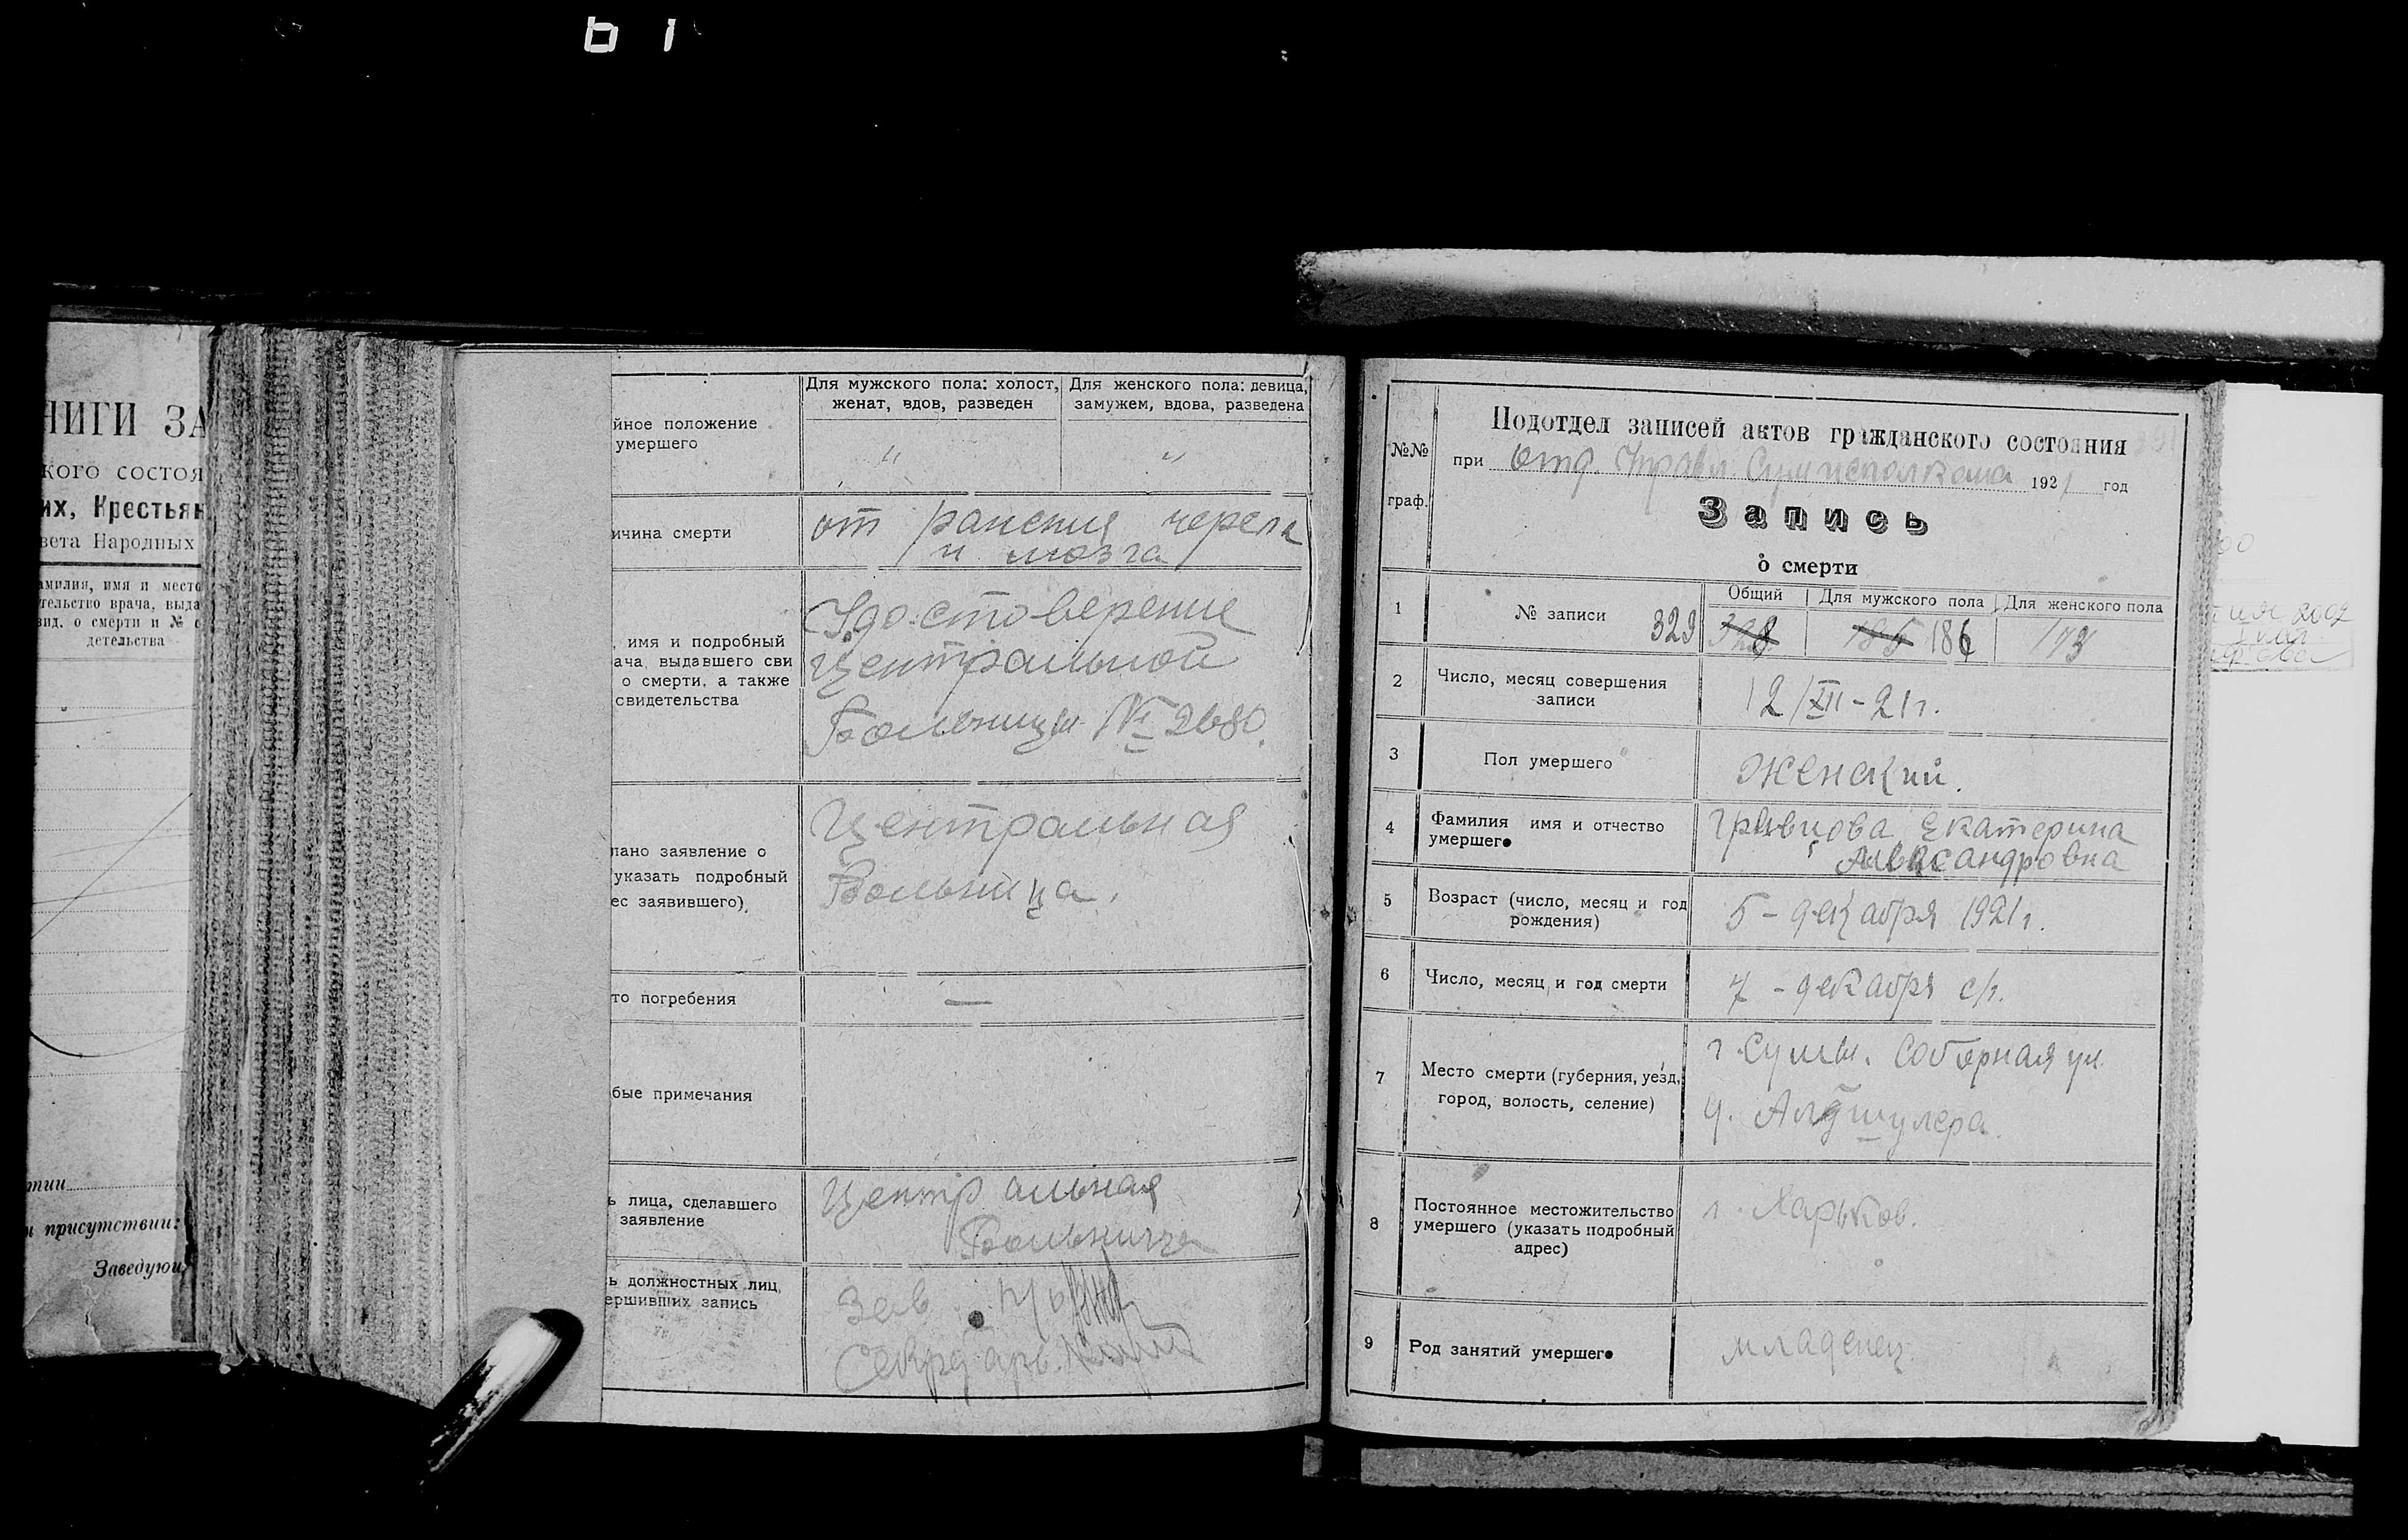 b i
НИГИ ЗА
кого состоя
их, Крестьян
вета Народных
амилия, имя и место
тельство врача, выда
вид. о смерти и № с
детельства
тии
и присутствии:
Заведующ
йное положение
умершего
Для мужского пола: холост,
женат, вдов, разведен
Для женского пола: девица,
замужем, вдова, разведена
"
"
ичина смерти
от ранения черепа
и мозга
, имя и подробный
ача, выдавшего сви
о смерти, а также
свидетельства
Удостоверение
Центральной
Больницы № 2680.
лано заявление о
указать подробный
ес заявившего).
Центральная
Больница.
то погребения
—
бые примечания
ь лица, сделавшего
заявление
Центральная
Больница
ь должностных лиц,
ершивших запись
Зав.
Секретарь
№№
граф.
Подотдел записей актов гражданского состояния
при Отд. Управл. Сумисполкома 1921 год
Запись
о смерти
1
№ записи
Общий
Для мужского пола
Для женского пола
329 328
185 186
143
2
Число, месяц совершения
записи
12/XII-21г.
3
Пол умершего
Женский.
4
Фамилия имя и отчество
умершего
Екатерина
Александровна
5
Возраст (число, месяц и год
рождения)
5 - декабря 1921 г.
6
Число, месяц и год смерти
7 - декабря с/г.
7
Место смерти (губерния, уезд,
город, волость, селение)
г. Сумы. Соборная ул.
д. Алдшулера.
8
Постоянное местожительство
умершего (указать подробный
адрес)
г. Харьков.
9
Род занятий умершего
младенец.